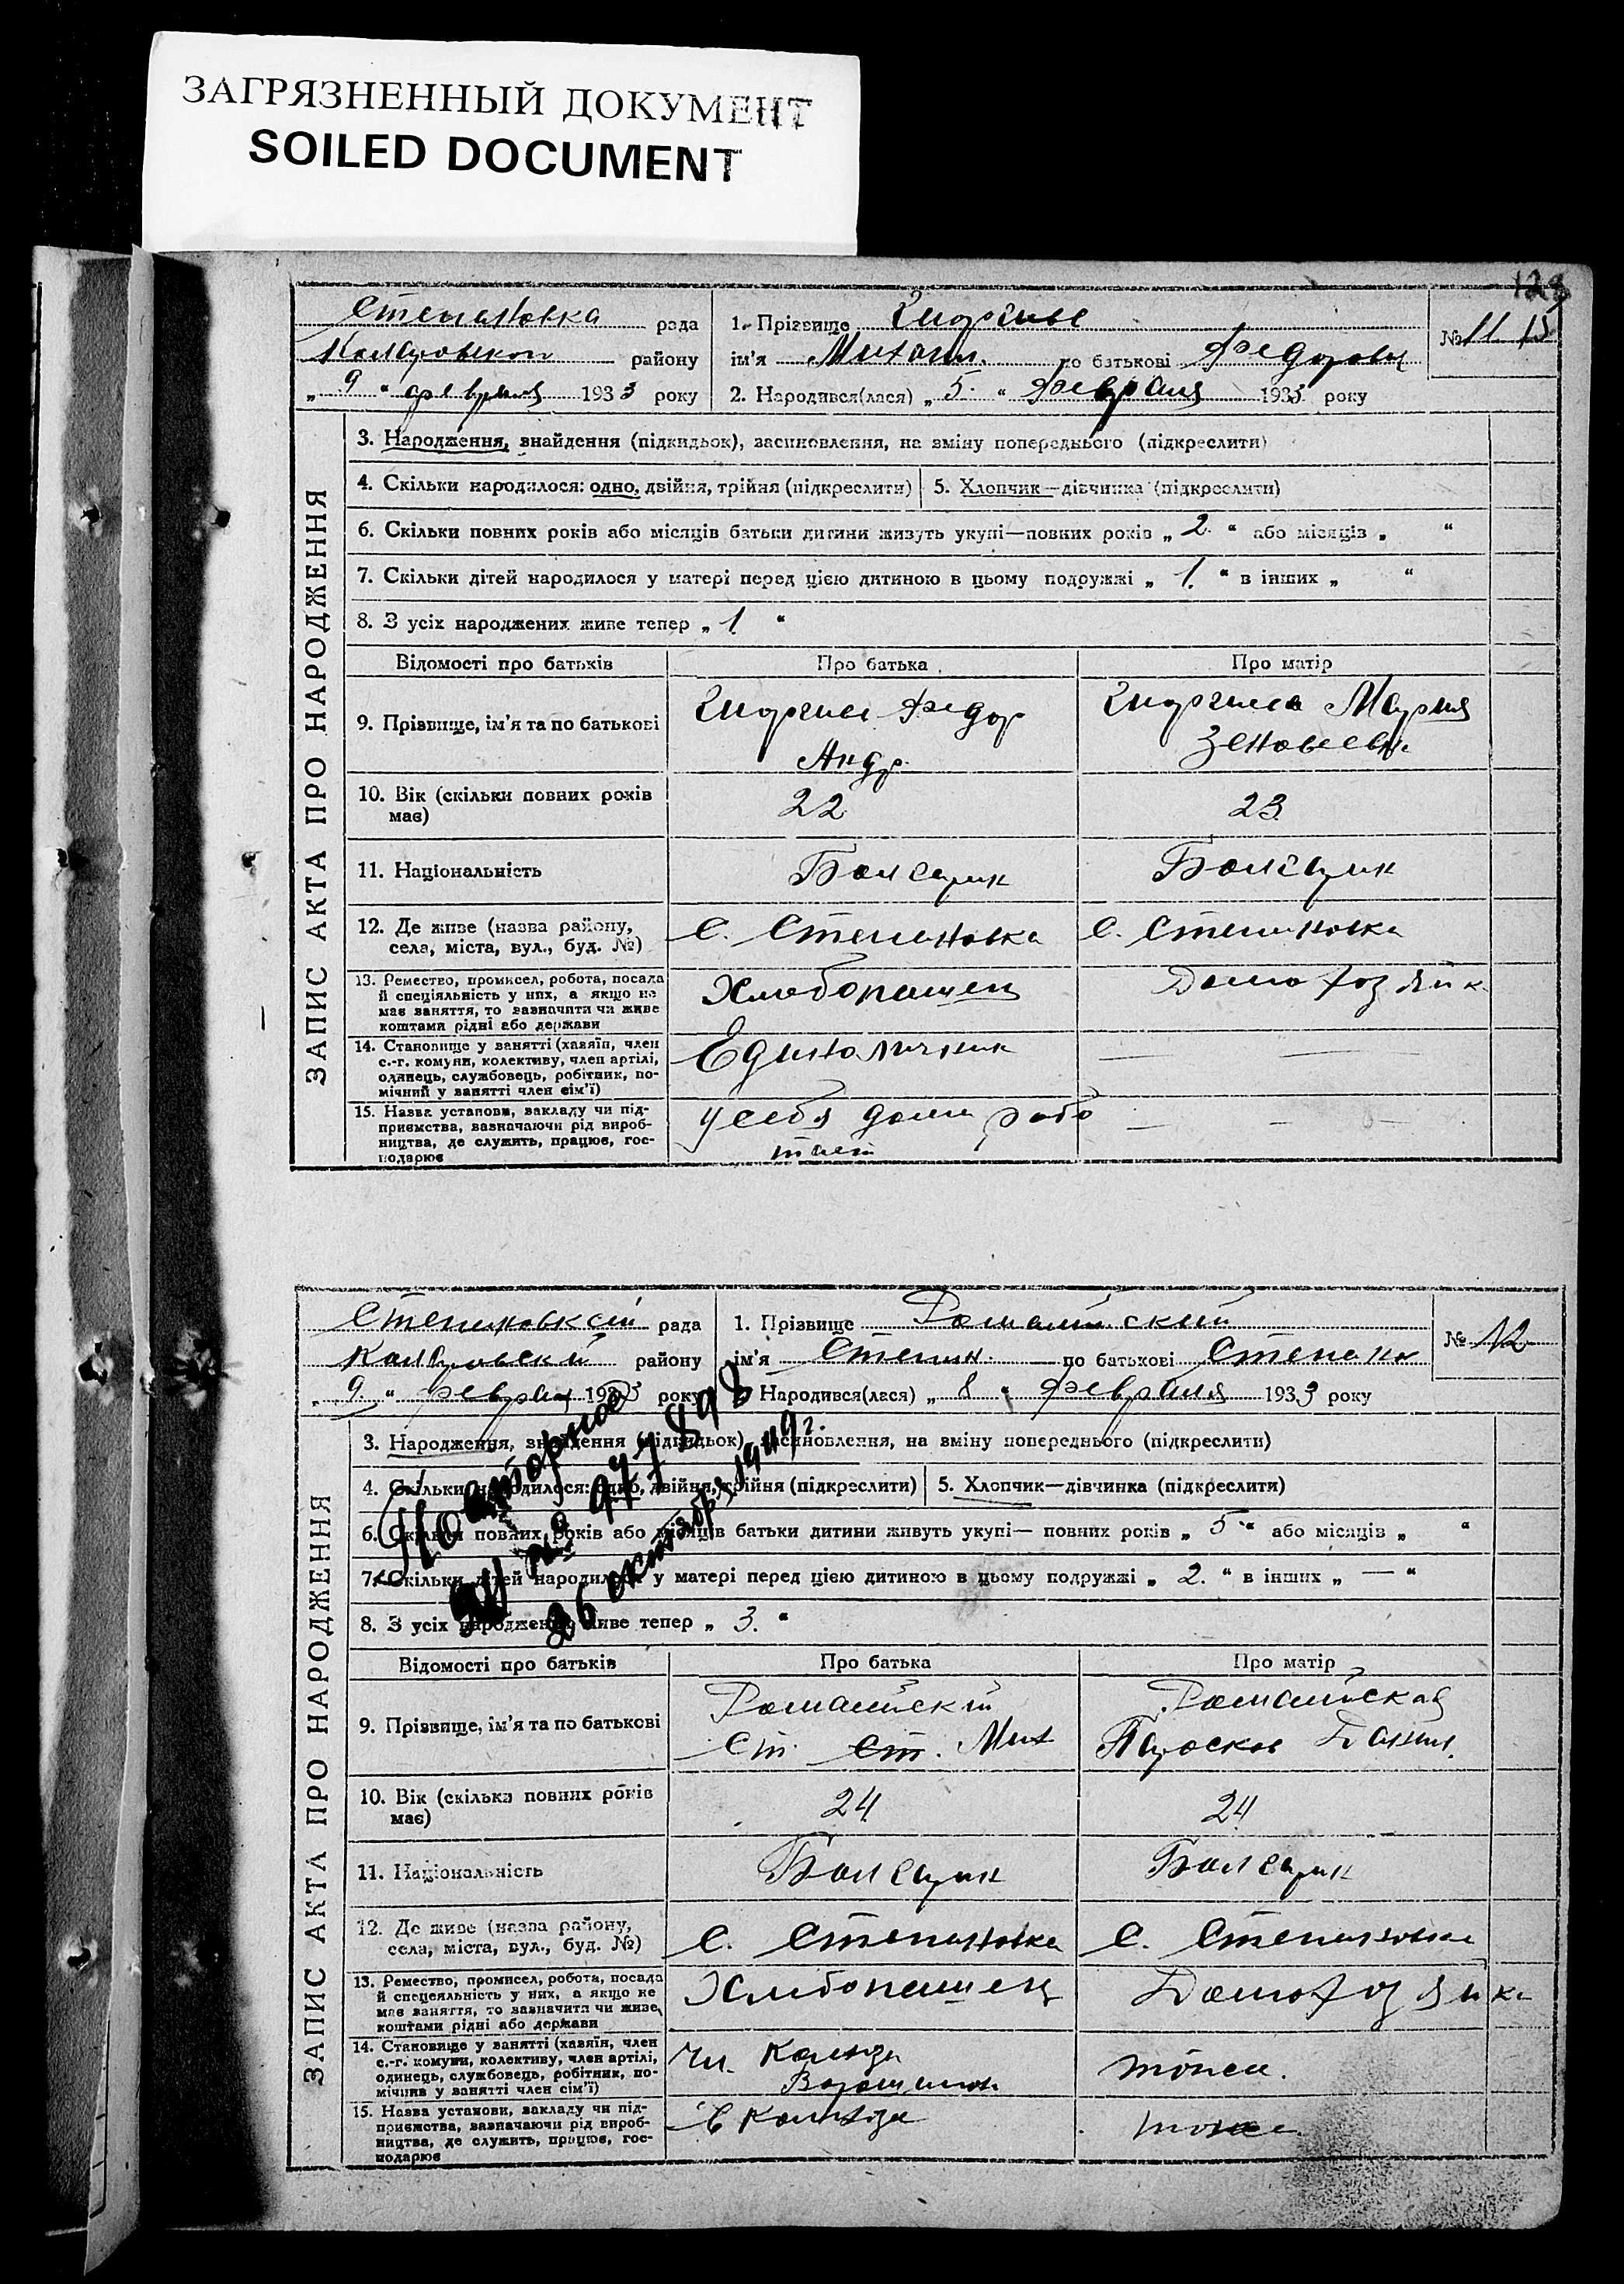 ЗАГРЯЗНЕННЫЙ ДОКУМЕНТ
SOILED DOCUMENT
Степановка рада
району
„ 9 “ февраля 1933 року
1. Прізвище
ім’я Михаил. по батькові Федоров
2. Народився(лася) „ 5. “ Февраля 1933 року
№ 11
ЗАПИС АКТА ПРО НАРОДЖЕННЯ
3. Народження, знайдення (підкидьок), засиновлення, на зміну попереднього (підкреслити)
4. Скільки народилося: одно, двійня, трійня (підкреслити) 5. Хлопчик—дівчинка (підкреслити)
6. Скільки повних років або місяців батьки дитини живуть укупі—повних років „ 2. “ або місяців „ “
7. Скільки дітей народилося у матері перед цією дитиною в цьому подружжі „ 1. “ в інших „ “
8. З усіх народжених живе тепер „ 1. “
Відомості про батьків Про батька Про матір
9. Прізвище, ім’я та по батькові
Федор
Андр.
Мария
Зеновеевн
10. Вік (скільки повних років має) 22 23
11. Національність Болгарин Болгарин
12. Де живе (назва району, села, міста, вул., буд. №) С. Степановка С. Степановка
13. Ремество, промисел, робота, посада
й спеціяльність у них, а якщо не
має заняття, то зазначити чи живе
коштами рідні або держави
Хлебопашец Домохозяйк
14. Становище у занятті (хазяїн, член
с.-г. комуни, колективу, член артілі,
одинець, службовець, робітник, по-
мічний у занятті член сім’ї)
Единоличник — —
15. Назва установи, закладу чи під-
приємства, зазначаючи рід вироб-
ництва, де служить, працює, гос-
подарює
У себя дома рабо
тает
— — —
рада
району
„ 9 “ феврал 1933 року
1. Прізвище
ім’я Степан. по батькові Степано
2. Народився(лася) „ 8 “ Февраля 1933 року
№ 12
Повторное
№ 977898
26 октября 1949 г.
ЗАПИС АКТА ПРО НАРОДЖЕННЯ
3. Народження, знайдення (підкидьок), засиновлення, на зміну попереднього (підкреслити)
4. Скільки народилося: одно, двійня, трійня (підкреслити) 5. Хлопчик—дівчинка (підкреслити)
6. Скільки повних років або місяців батьки дитини живуть укупі— повних років „ 5 “ або місяців „ “
7. Скільки дітей народилося у матері перед цією дитиною в цьому подружжі „ 2. “ в інших „ — “
8. З усіх народжених живе тепер „ 3. “
Відомості про батьків Про батька Про матір
9. Прізвище, ім’я та по батькові
Ст. Ст. Мих
Парасков Данил.
10. Вік (скільки повних років має) 24 24
11. Національність Болгарин Болгарин
12. Де живе (назва району, села, міста, вул., буд. №) С. Степановка С. Степановка
13. Ремество, промисел, робота, посада
й спецеяльність у них, а якщо не
має заняття, то зазначити чи живе
коштами рідні або держави
Хлебопашец Домохозяйка
14. Становище у занятті (хазяїн, член
с.-г. комуни, колективу, член артілі,
одинець, службовець, робітник, по-
мічнив у занятті член сім’ї)
Чл. Колхоза
тоже.
15. Назва установи, закладу чи під-
приємства, зазначаючи рід вироб-
ництва, де служить, працює, гос-
подарює
В Колхозе тоже.